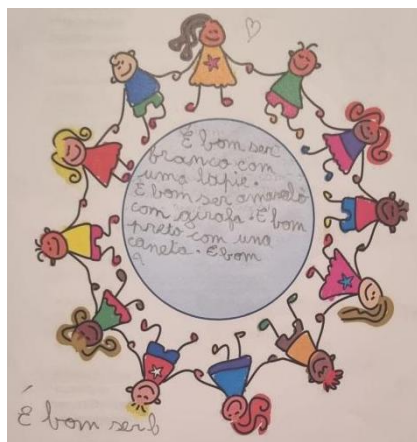 É bom ser
branco com
uma lapie.
E bom ser amarelo
com girafa. É bom
preto com una
caneta. E bom
É bom serb